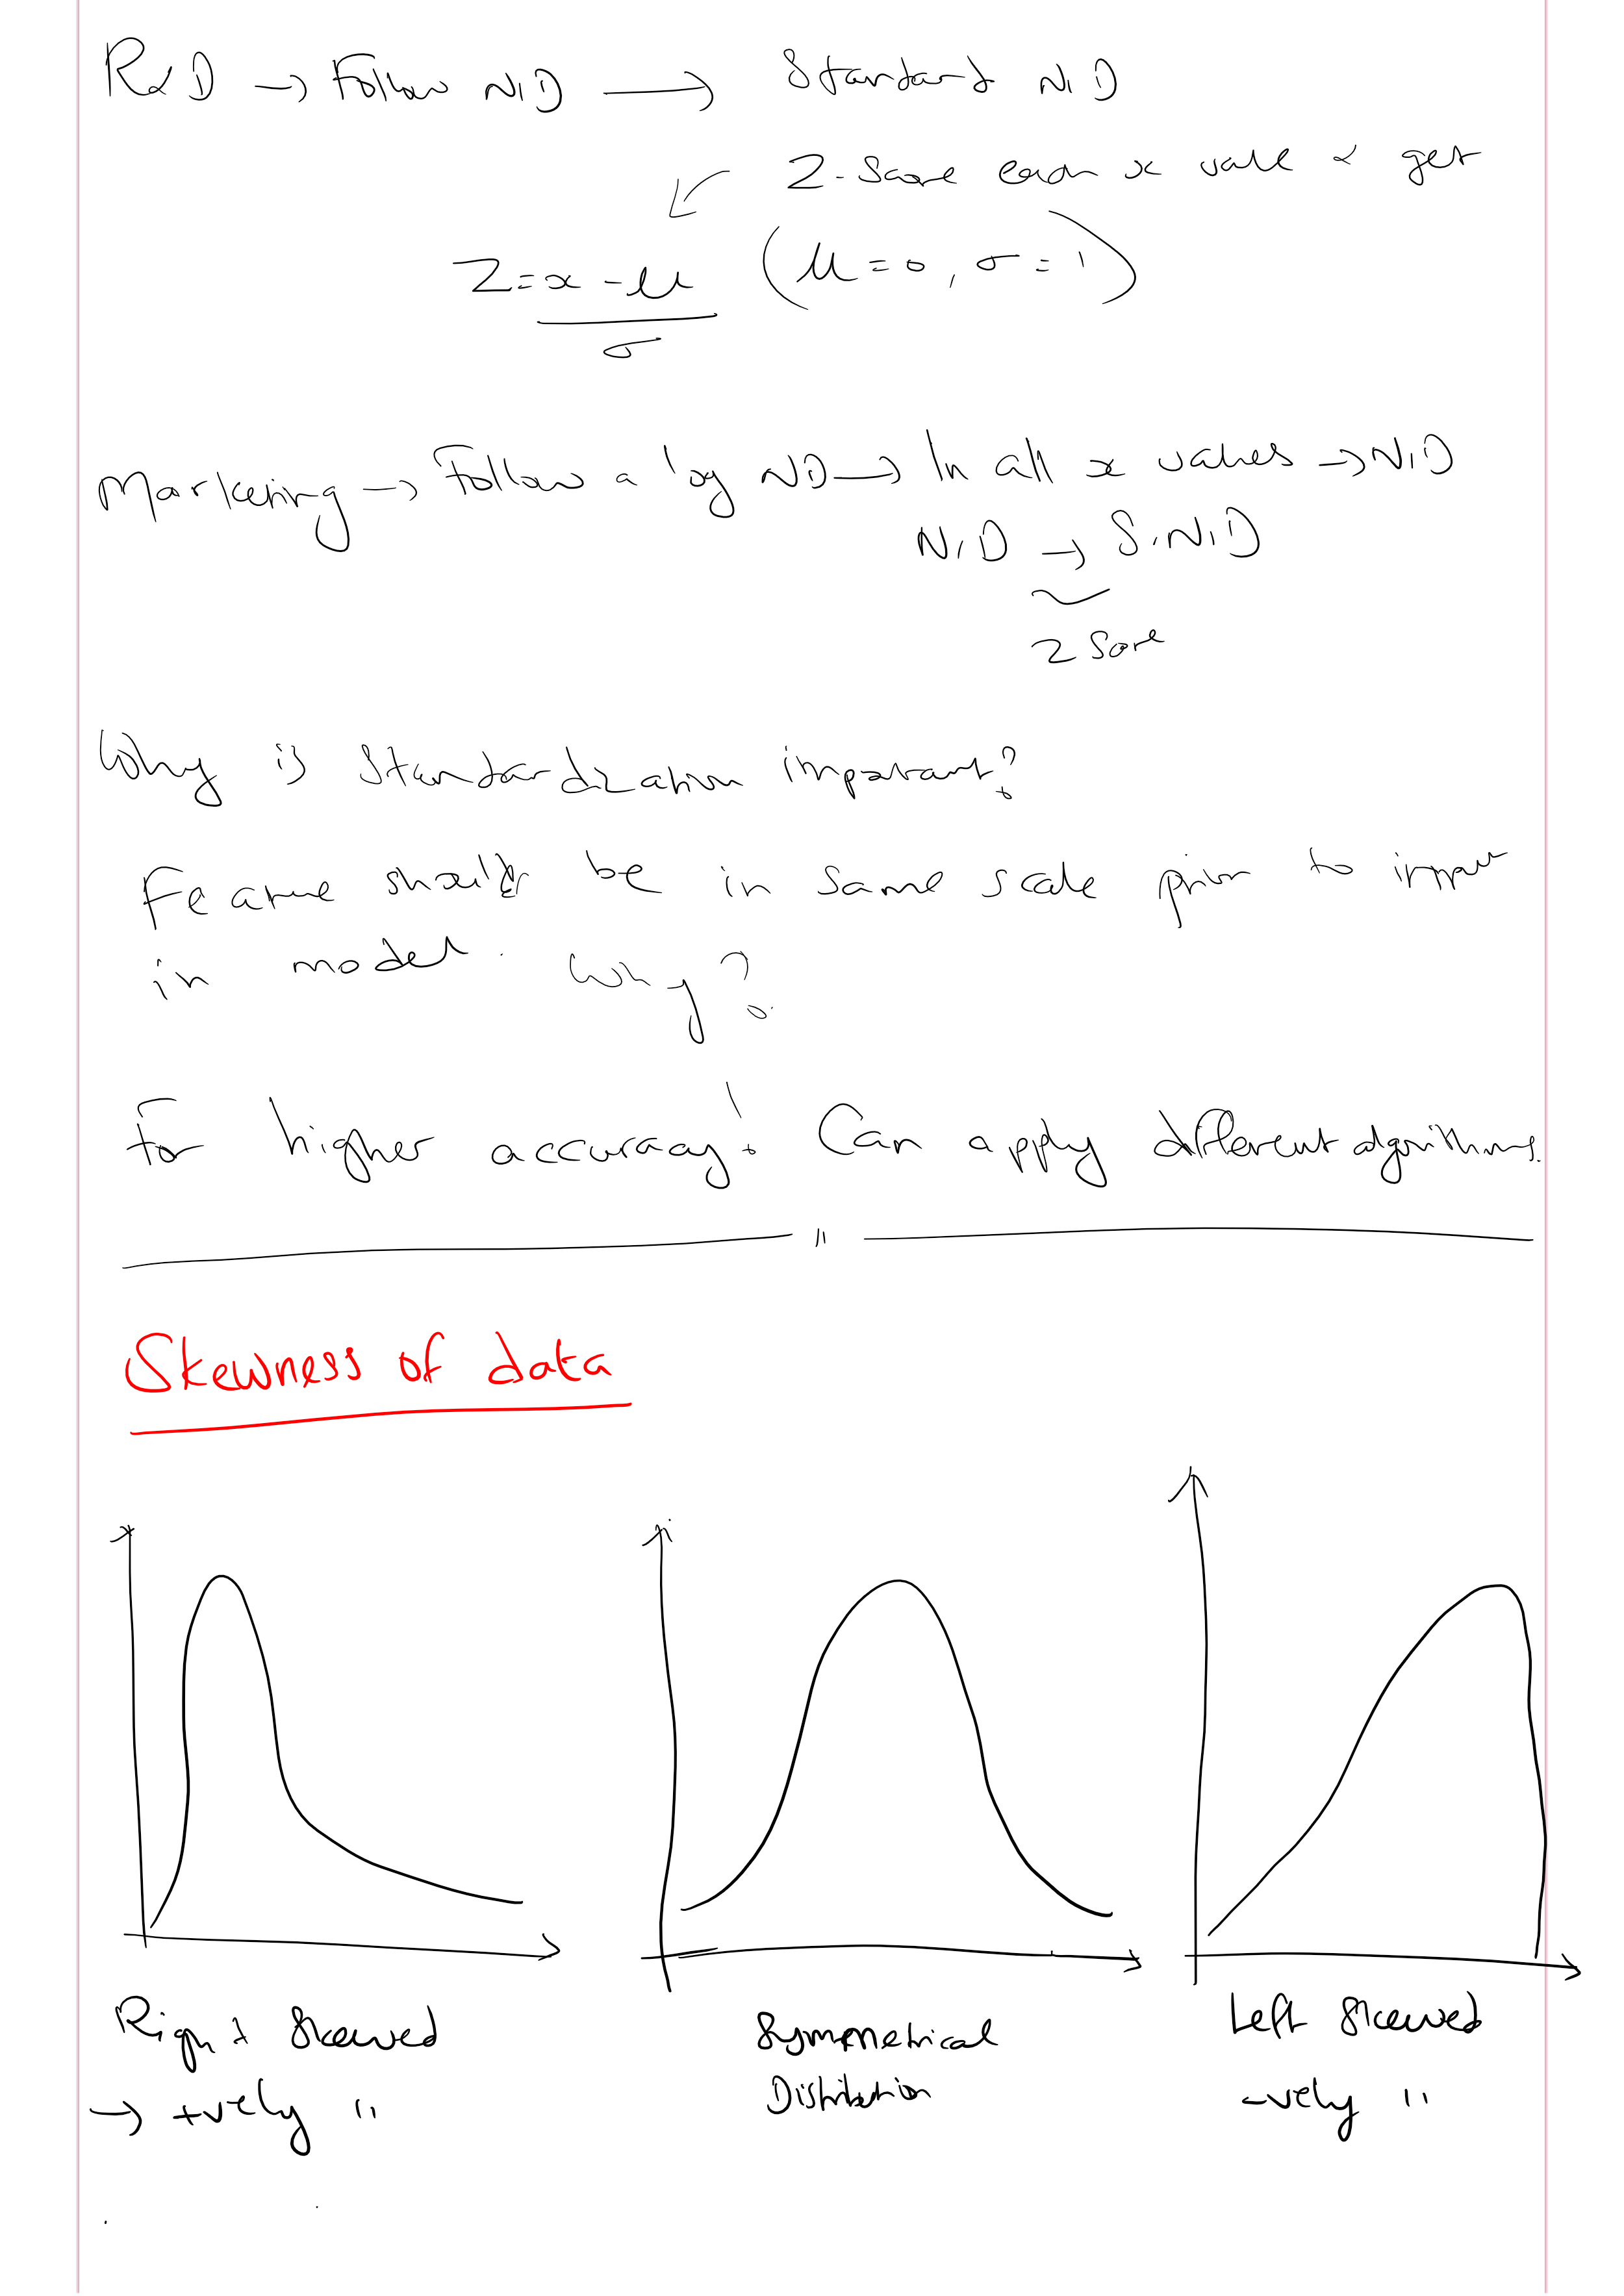 R&D → Follow N.D → Standard N.D
Z-Score each x value & get
Z = x - μ (μ = 0, σ = 1)
σ
Marketing → Follow a log ND → ln all x values → N.D
N.D → S.N.D
Z Score
Why is Standardization important?
Feature should be in same scale prior to input
in model. Why?
For higher accuracy! Can apply different algorithms.
"
Skewness of data
Right Skewed Symmetrical Left Skewed
→ +vely " Distribution -vely "